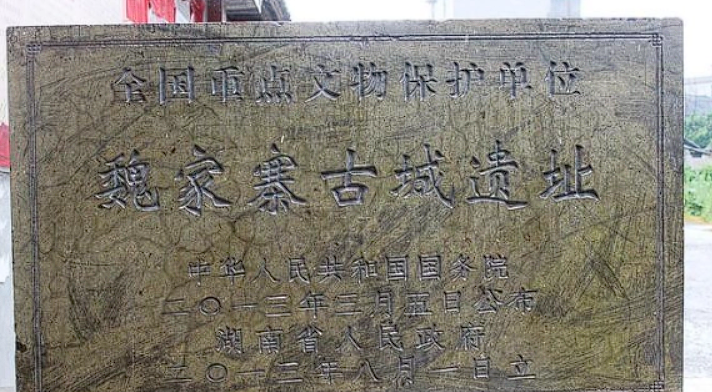 全国重点文物保护单位
魏家寨古城遗址
中华人民共和国国务院
二〇一三年三月五日公布
湖南省人民政府
二〇一三年八月一日立